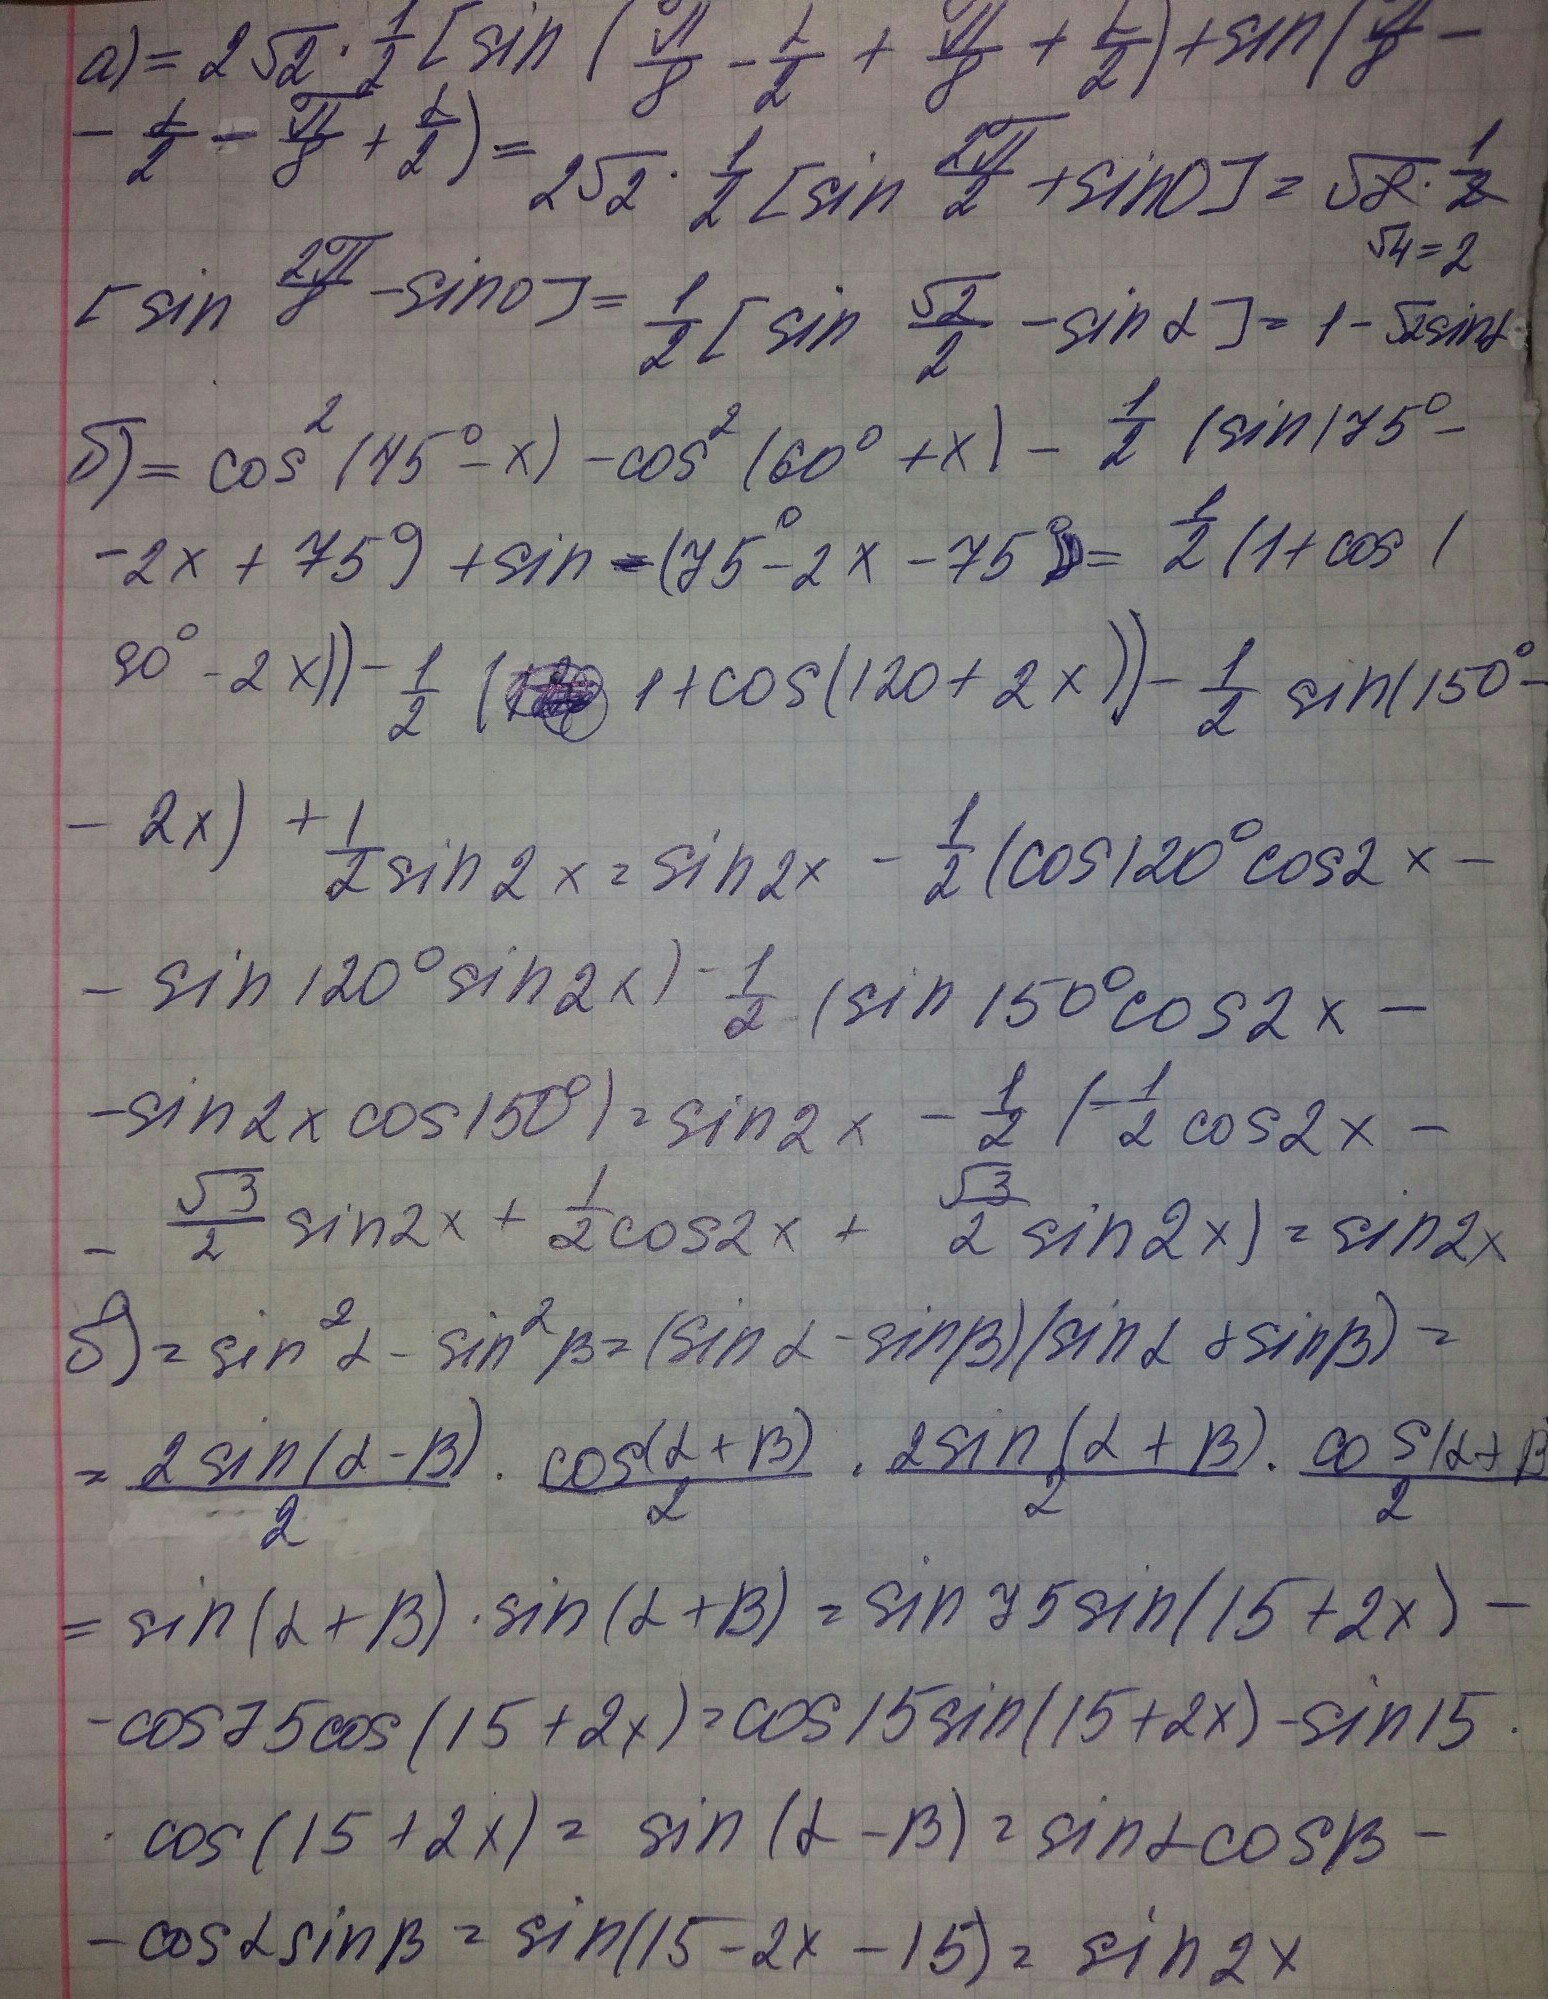 а) = 2√2 · 1/2 [sin (π/8 - α/2 + π/8 + α/2) + sin (π/8 -
- α/2 - π/8 + α/2) = 2√2 · 1/2 [sin 2π/2 + sin 0] = √8 · 1/2
√4 = 2
[sin 2π/8 - sin 0] = 1/2 [sin √2/2 - sin α] = 1 - √2 sin α
б) = cos² (45° - x) - cos² (60° + x) - 1/2 (sin 175° -
- 2x + 75°) + sin - (75° - 2x - 75°) = 1/2 (1 + cos (
90° - 2x)) - 1/2 ( 1 + cos (120 + 2x)) - 1/2 sin (150° -
- 2x) + 1/2 sin 2x = sin 2x - 1/2 (cos 120° cos 2x -
- sin 120° sin 2x) - 1/2 (sin 150° cos 2x -
- sin 2x cos 150°) = sin 2x - 1/2 (-1/2 cos 2x -
- √3/2 sin 2x + 1/2 cos 2x + √3/2 sin 2x) = sin 2x
б) = sin² α - sin² β = (sin α - sin β) (sin α + sin β) =
= 2 sin (α - β)/2 · cos (α + β)/2 · 2 sin (α + β)/2 · cos (α + β/2
= sin (α + β) · sin (α + β) = sin 75 sin (15 + 2x) -
- cos 75 cos (15 + 2x) = cos 15 sin (15 + 2x) - sin 15 ·
· cos (15 + 2x) = sin (α - β) = sin α cos β -
- cos α sin β = sin (15 - 2x - 15) = sin 2x